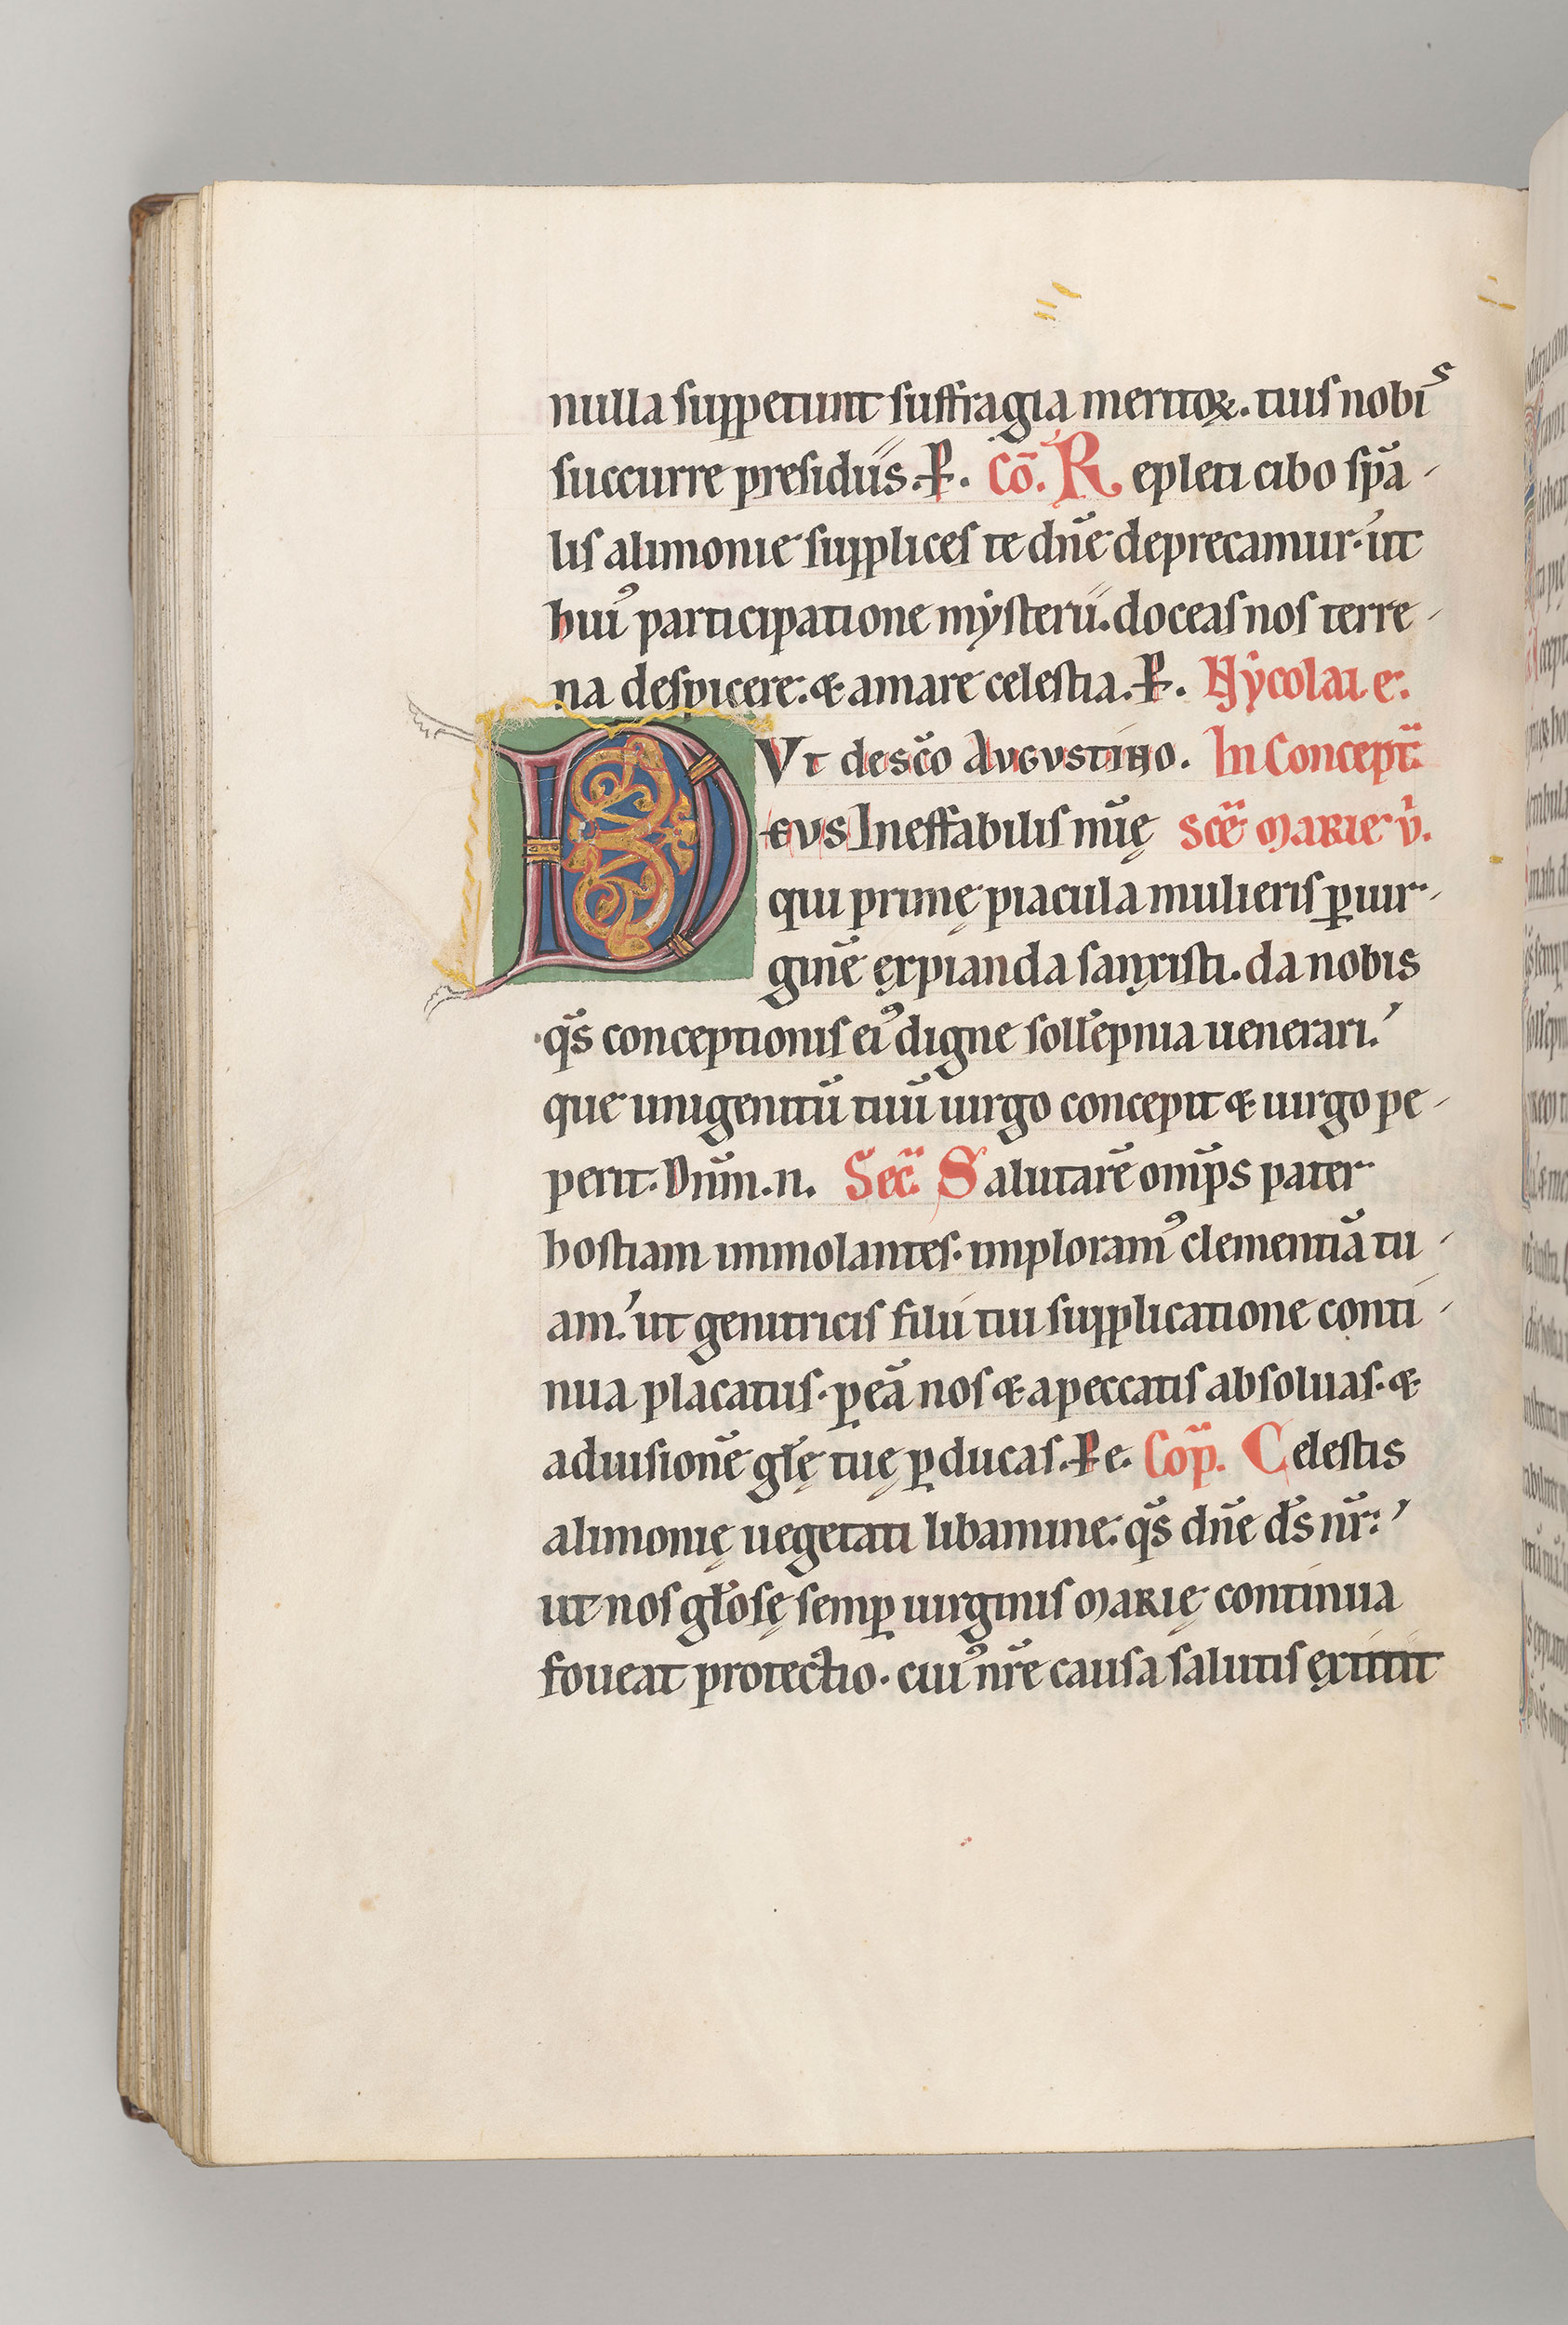 nulla suppetunt suffragia meritoꝝ. tuis nobiˢ
succurre presidiis. P̵. Cō. Repleti cibo sp̄a-
lis alimonie supplices te dn̄e deprecamur. ut
huiꝰ participatione mẏsterii. doceas nos terre-
na despicere. & amare celestia. P̵. Nẏcolai e.
Vt de sc̄o Augustino. In Concept̄.
DEVS Ineffabilis mīe sc̄e Marie v̄.
qui primę piacula mulieris ꝑ uir-
ginē expianda sanxisti. da nobis
qs̄ conceptionis eiꝰ digne sollēpnia uenerari.
que unigenitū tuū uirgo concepit & uirgo pe-
perit. Dn̄m. n. Sec̄. Salutarē omp̄s pater
hostiam immolantes. imploramꝰ clementiā tu-
am. ut genitricis filii tui supplicatione conti-
nua placatus. ꝑ eā nos & a peccatis absoluas. &
ad uisionē gl̄ę tuę ꝑducas. P̵ e. Cōp. Celestis
alimonię uegetati libamine. qs̄ dn̄e ds̄ nr̄.
ut nos gl̄osę semꝑ uirginis Marię continua
foueat protectio. cuiꝰ nr̄e causa salutis extitit